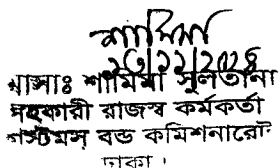 শামিমা
২৩/১২/২০২৪
খাসাঃ শামিমা সুলতানা
সহকারী রাজস্ব কর্মকর্তা
কাস্টমস বন্ড কমিশনারেট
ঢাকা।